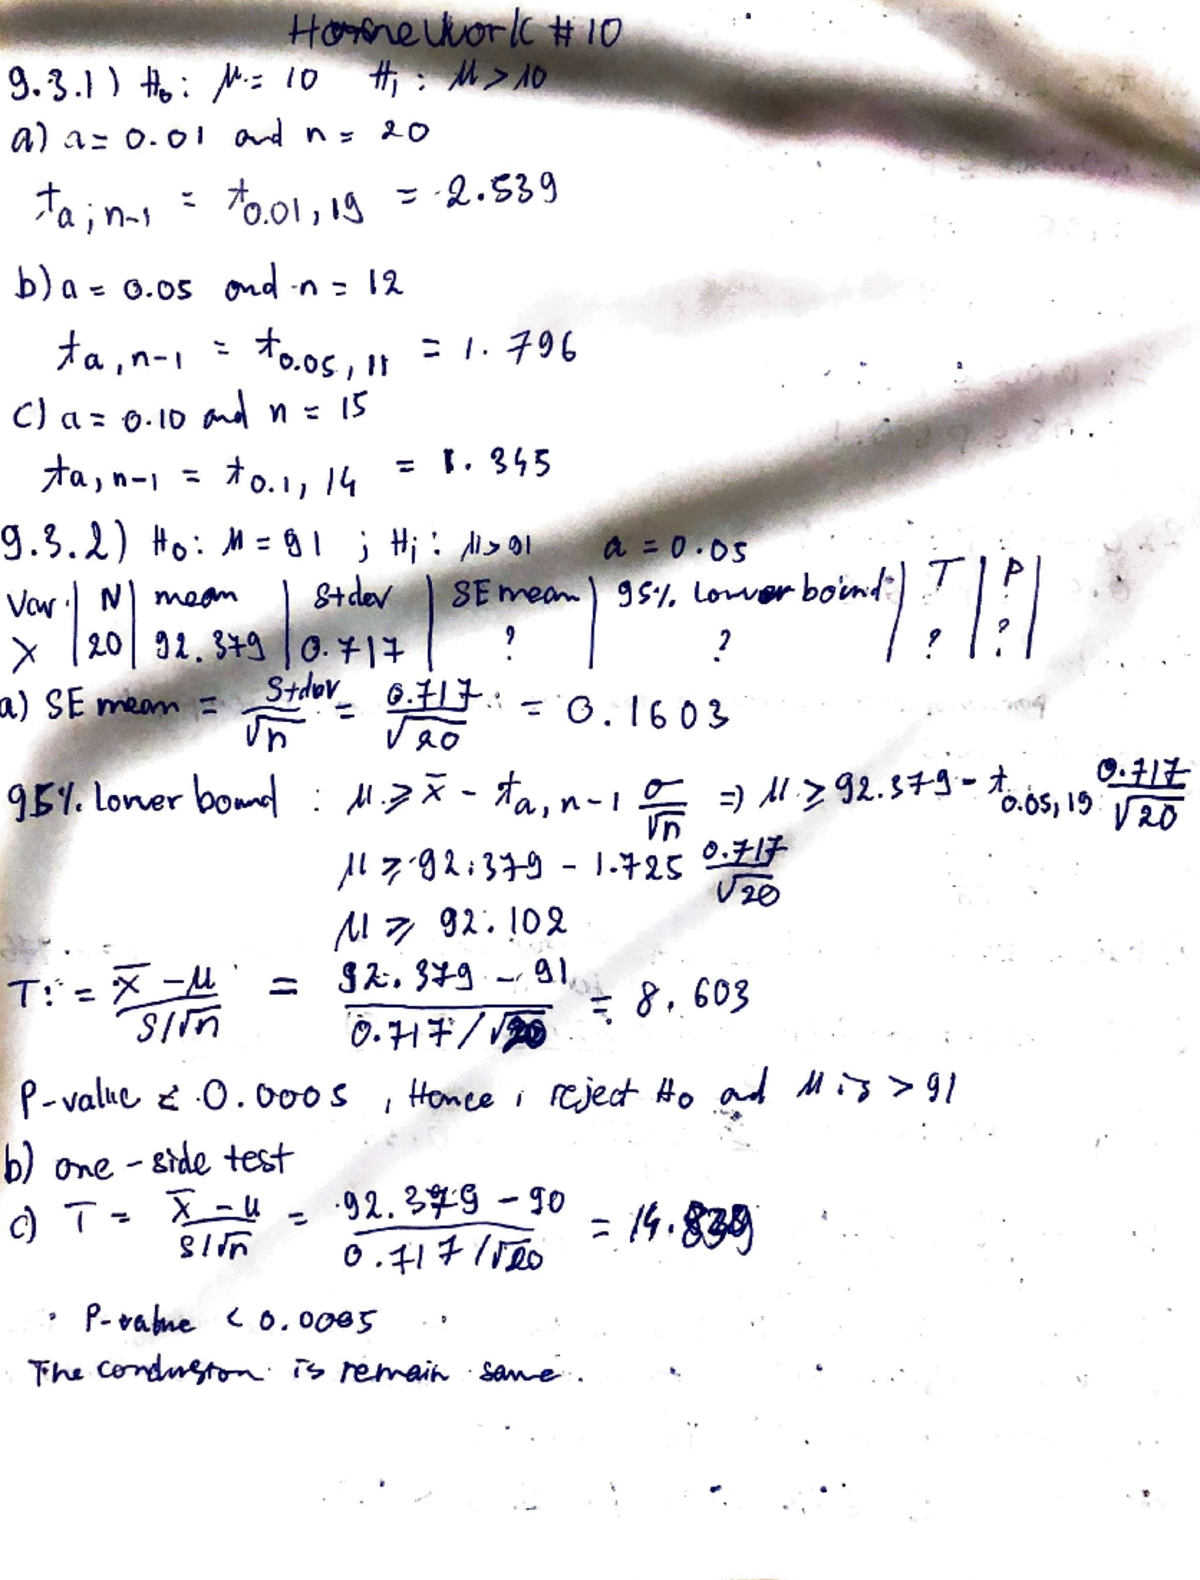 Homework #10
9.3.1) H₀: μ = 10 H₁: μ > 10
a) a = 0.01 and n = 20
t a; n-1 = t 0.01, 19 = 2.539
b) a = 0.05 and n = 12
t a, n-1 = t 0.05, 11 = 1.796
c) a = 0.10 and n = 15
t a, n-1 = t 0.1, 14 = 1.345
9.3.2) H₀: μ = 91 ; H₁: μ > 91 a = 0.05
Var | N | mean | Stdev | SE mean | 95% Lower bound | T | P |
X | 20 | 92.379 | 0.717 | ? | ? | ? | ? |
a) SE mean = Stdev/√n = 0.717/√20 = 0.1603
95% Lower bound : μ ≥ x̄ - t a, n-1 σ/√n ⇒ μ ≥ 92.379 - t 0.05, 19 0.717/√20
μ ≥ 92.379 - 1.725 0.717/√20
μ ≥ 92.102
T: = x̄ - μ / S/√n = 92.379 - 91 / 0.717/√20 = 8.603
P-value ≤ 0.0005, Hence, reject H₀ and μ is > 91
b) one-side test
c) T = x̄ - μ / S/√n = 92.379 - 90 / 0.717/√20 = 14.839
P-value < 0.0005
The conclusion is remain same.